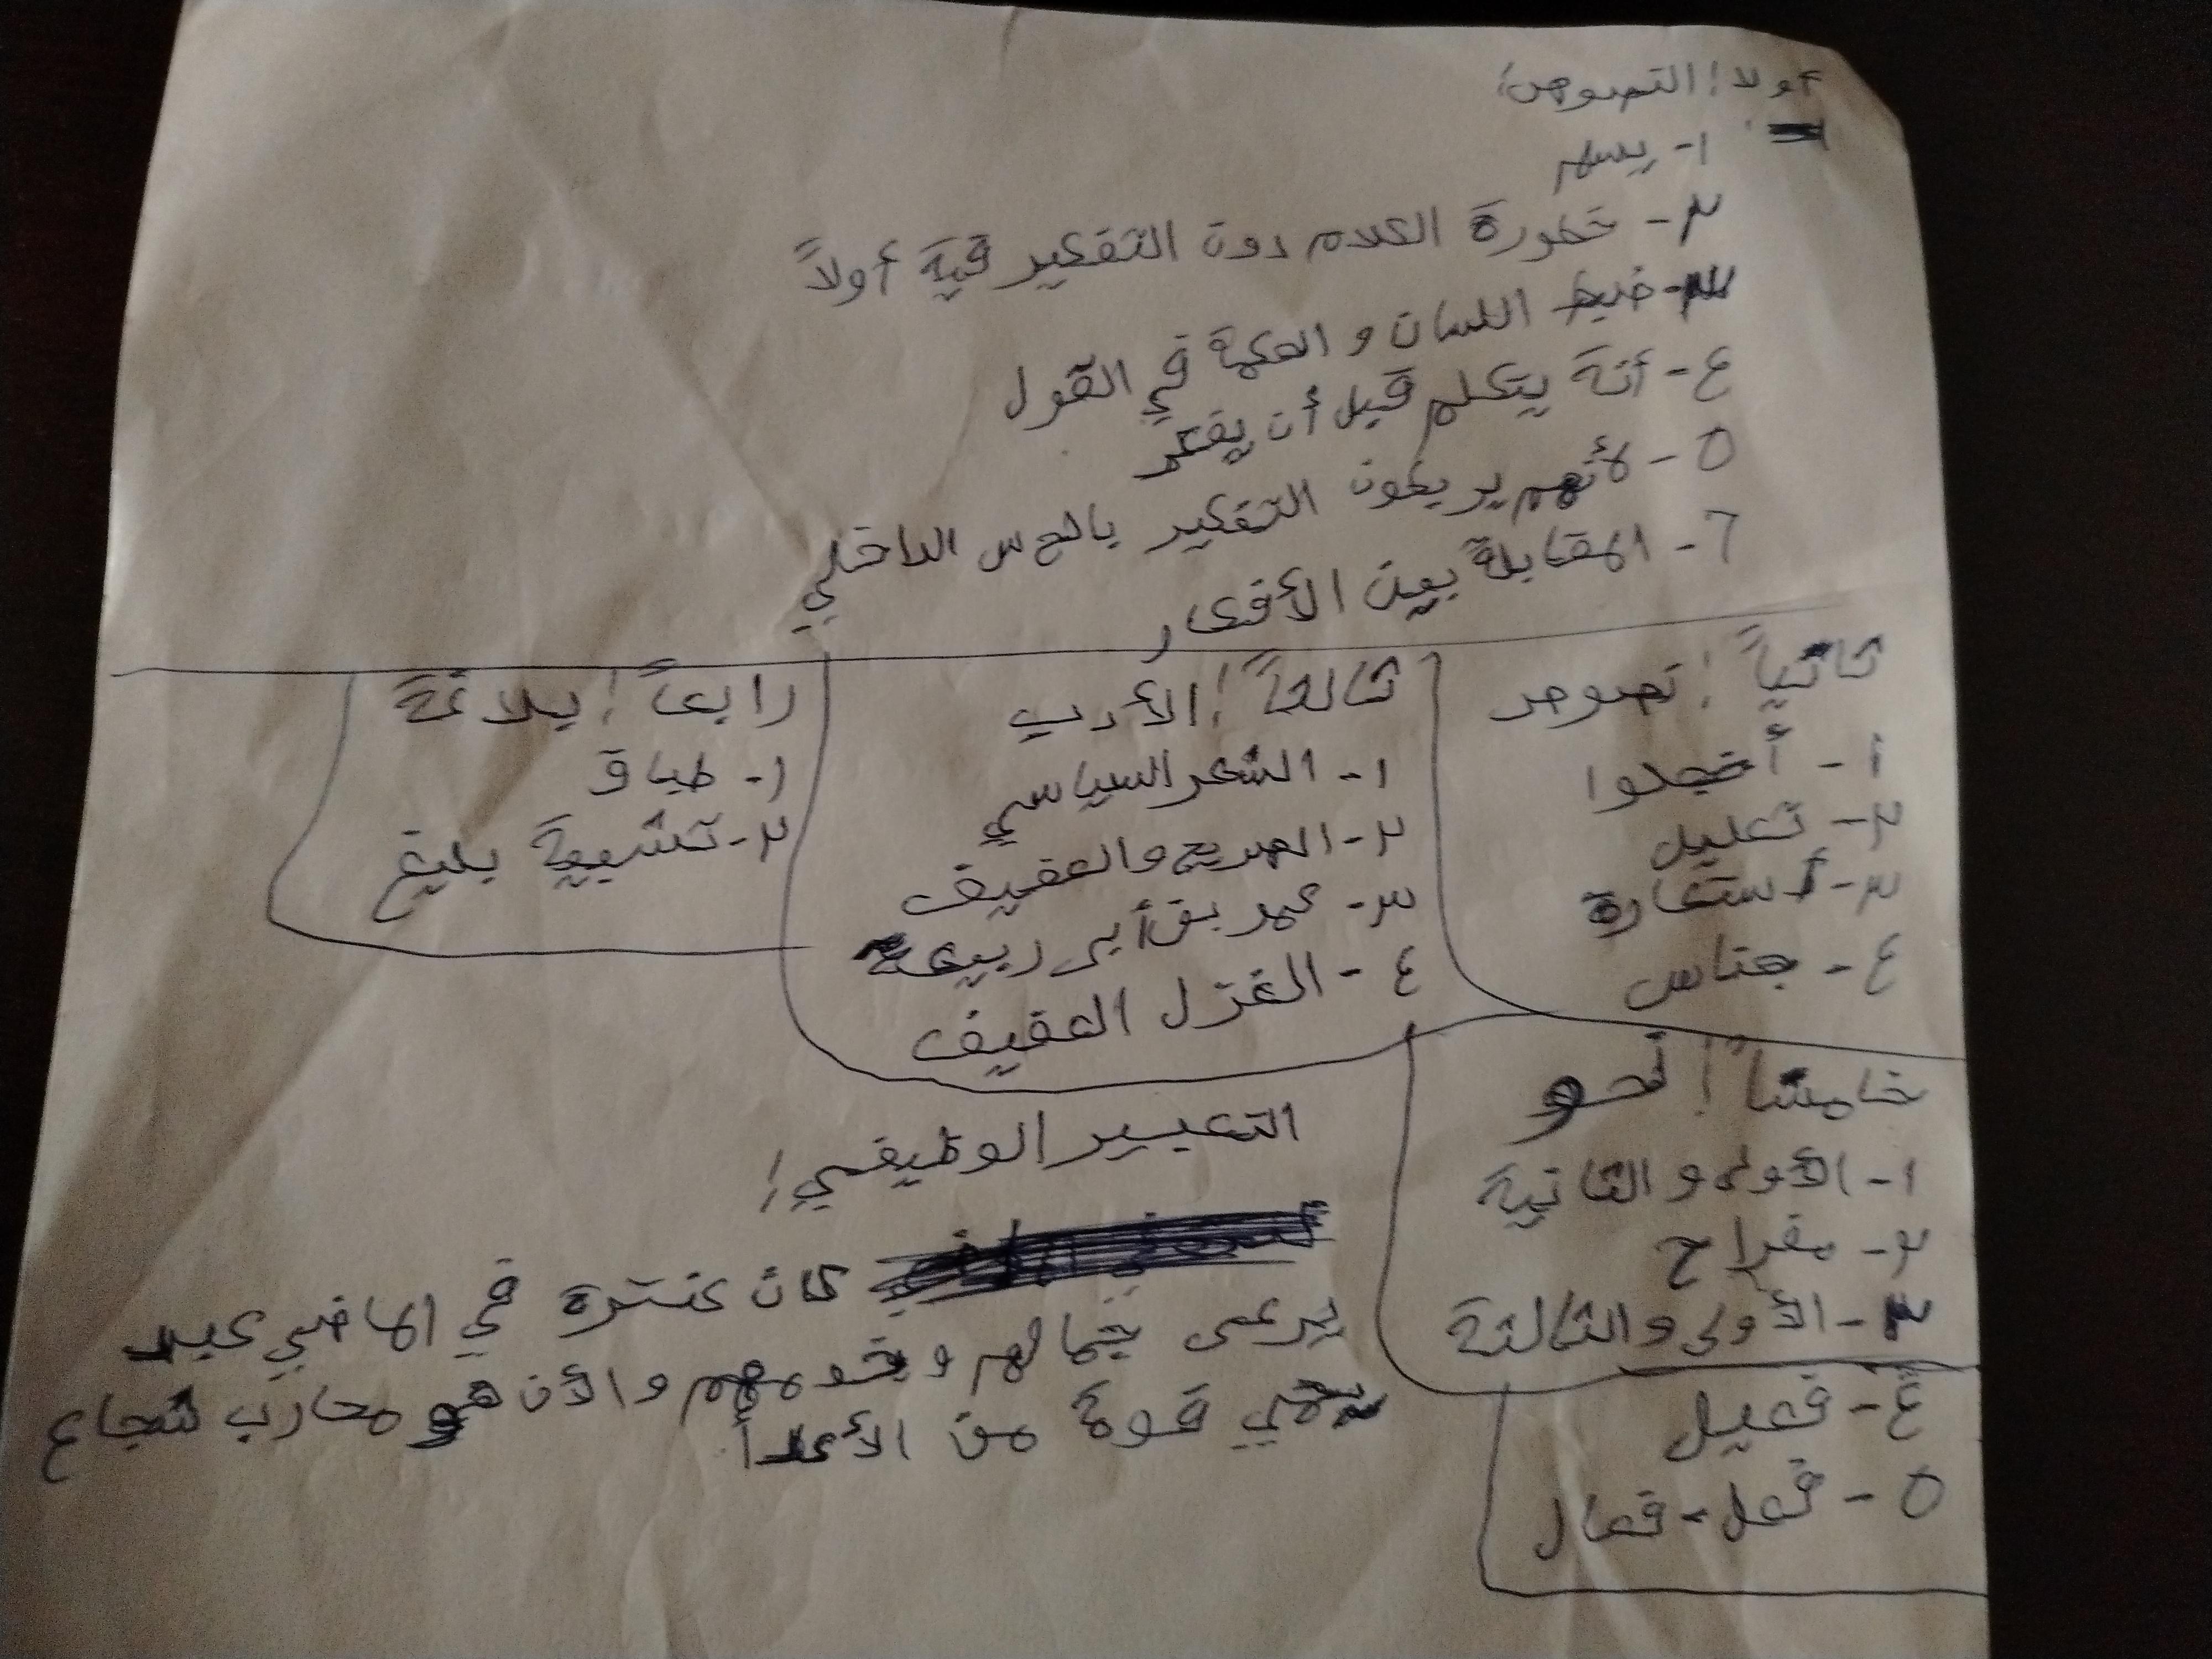 أولا: النصوص:
١- يسهم
٢- خطورة الكلام دون التفكير فية أولاً
٣- ضبط اللسان و الحكمة في القول
٤- أنة يتكلم قبل أن يفكر
٥- لأنهم يربطون التفكير بالحس الداخلي
٦- المقابلة بين الأفكار
ثانياً: نصوص
١- أخجلوا
٢- تعليل
٣- أستعارة
٤- جناس
ثالثاً: الأدب
١- الشعر السياسي
٢- الصريح والعفيف
٣- عمر بن أبي ربيعة
٤- الغزل العفيف
رابعاً: بلاغة
١- طباق
٢- تشبية بليغ
خامساً: نحو
١- الأولى و الثانية
٢- مفراح
٣- الأولى والثالثة
٤- فعيل
٥- فعل - فعال
التعبير الوظيفي:
كان عنترة في الماضي عبد
يرعى جمالهم و والأن هو محارب شجاع
يحمي قومة من الأعداأ